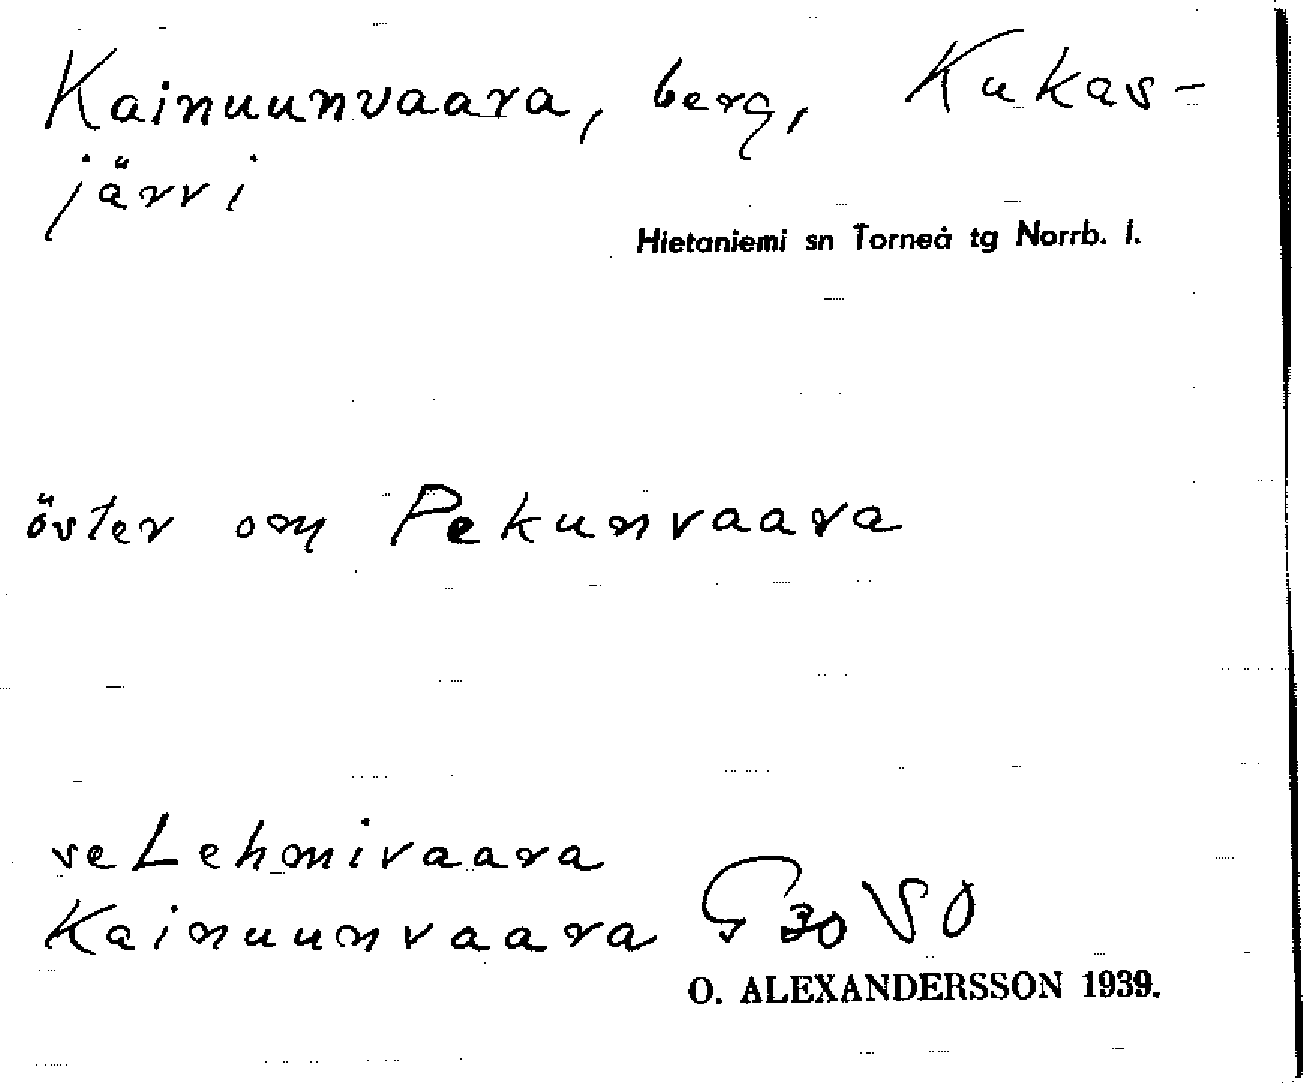 Kainuunvaara, berg, Kukas-
järvi
Hietaniemi sn Torneå tg Norrb. l.
öster om Pekunvaara
se Lehmivaara
Kainuunvaara G 30 SO
O. ALEXANDERSSON 1939.